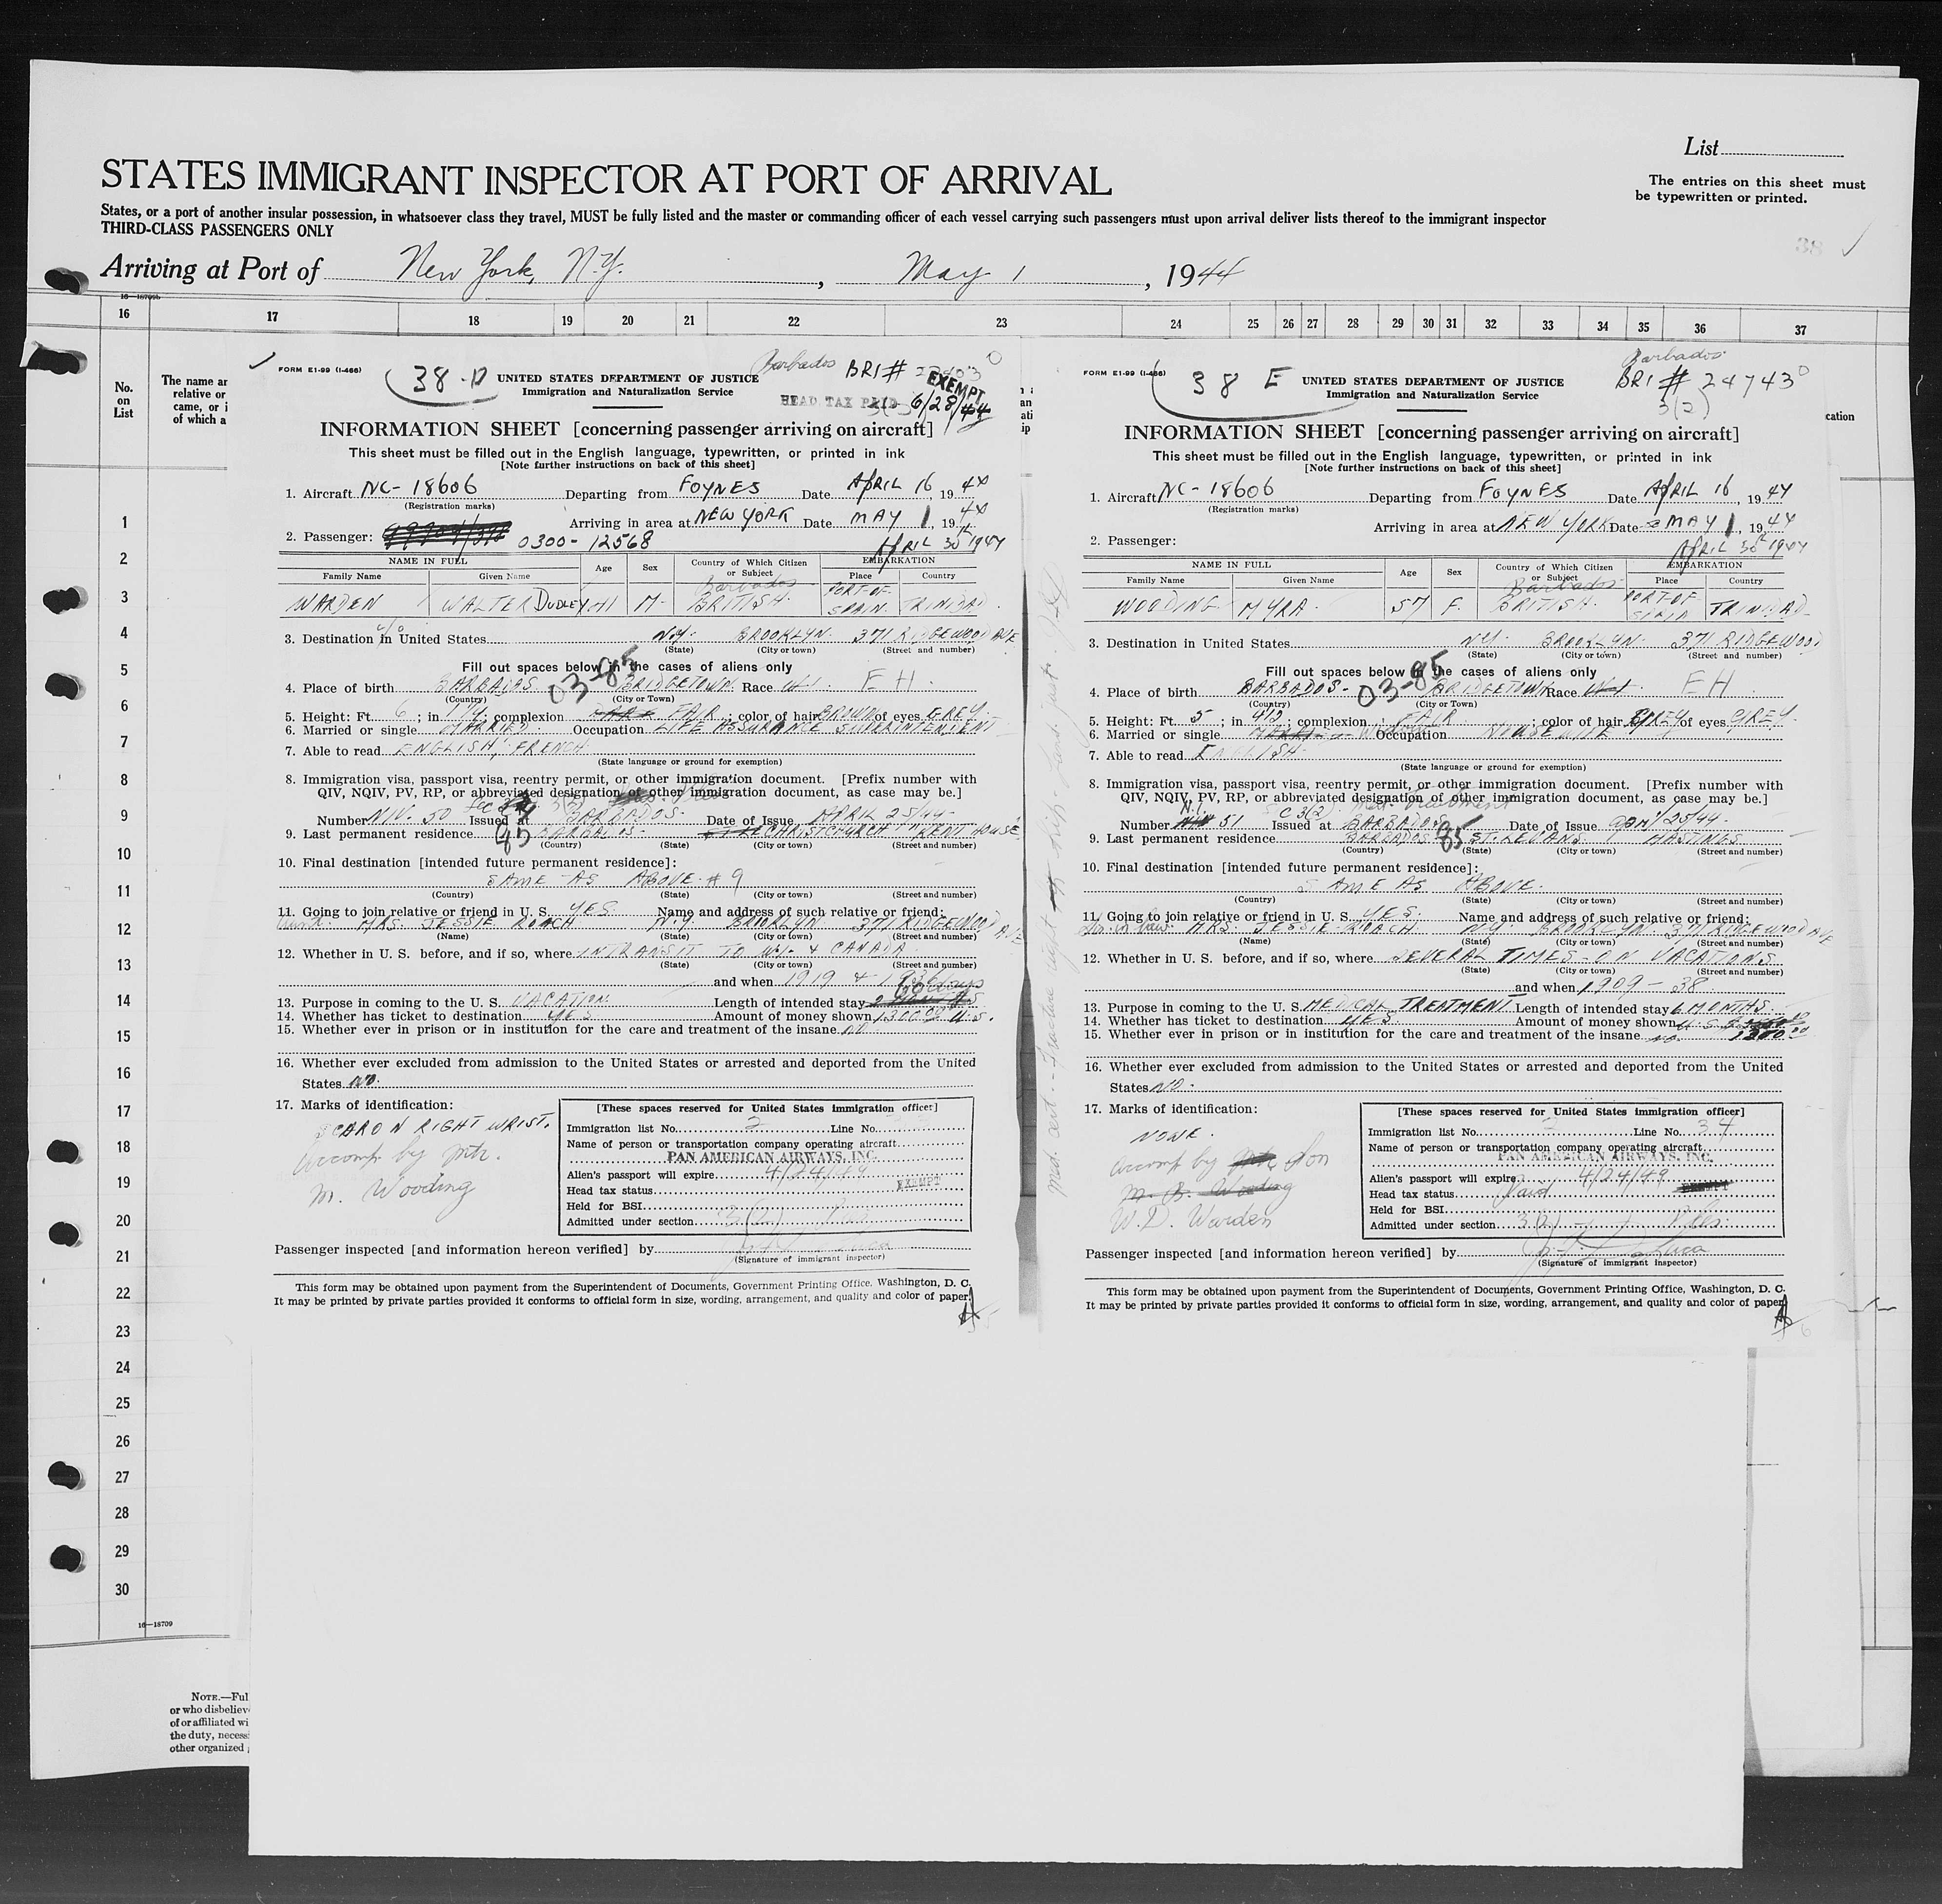 List
The entries on this sheet must
be typewritten or printed.
STATES IMMIGRANT INSPECTOR AT PORT OF ARRIVAL
States, or a port of another insular possession, in whatsoever class they travel, MUST be fully listed and the master or commanding officer of each vessel carrying such passengers must upon arrival deliver lists thereof to the immigrant inspector
THIRD-CLASS PASSENGERS ONLY
38
Arriving at Port of New York, N.Y., May 1, 1944
16 17 18 19 20 21 22 23 24 25 26 27 28 29 30 31 32 33 34 35 36 37
No.
on
List
The name ar
relative or
came, or i
of which a
1
2
3
4
5
6
7
8
9
10
11
12
13
14
15
16
17
18
19
20
21
22
23
24
25
26
27
28
29
30
16—18709
NOTE.—Ful
or who disbeliev
of or affiliated wi
the duty, necess
other organized
FORM E1-99 (I-466)
38-D
Barbados BRI#
UNITED STATES DEPARTMENT OF JUSTICE
Immigration and Naturalization Service
HEAD TAX PAID EXEMPT 6/28/44
INFORMATION SHEET [concerning passenger arriving on aircraft]
This sheet must be filled out in the English language, typewritten, or printed in ink
[Note further instructions on back of this sheet]
1. Aircraft NC-18606 Departing from FOYNES Date APRIL 16, 1944
(Registration marks)
Arriving in area at NEW YORK Date MAY 1, 1944
2. Passenger: 0300-12568 APRIL 30 1944
NAME IN FULL Age Sex Country of Which Citizen or Subject EMBARKATION
Family Name Given Name Place Country
WARDEN WALTER DUDLEY 41 M. Barbados BRITISH. PORT-OF-SPAIN TRINIDAD.
3. Destination in United States N.Y. BROOKLYN. 371 RIDGEWOOD AVE
(State) (City or town) (Street and number)
Fill out spaces below in the cases of aliens only
03-85
4. Place of birth BARBADOS. BRIDGETOWN. Race W.I. EH.
(Country) (City or Town)
5. Height: Ft. 6; in 1¼; complexion DARK FAIR; color of hair BROWN of eyes GREY.
6. Married or single MARRIED. Occupation LIFE ASSURANCE SUPERINTENDENT
7. Able to read ENGLISH, FRENCH
(State language or ground for exemption)
8. Immigration visa, passport visa, reentry permit, or other immigration document. [Prefix number with
QIV, NQIV, PV, RP, or abbreviated designation of other immigration document, as case may be.]
Number NIV. 50 Issued at BARBADOS. Date of Issue APRIL 25/44-
9. Last permanent residence 85 BARBADOS- CHRISTCHURCH "KENT HOUSE
(Country) (State) (City or town) (Street and number)
10. Final destination [intended future permanent residence]:
SAME AS ABOVE. #9
(Country) (State) (City or town) (Street and number)
11. Going to join relative or friend in U. S. YES Name and address of such relative or friend:
MRS. JESSIE ROACH N.Y. BROOKLYN 371 RIDGEWOOD AVE
(Name) (State) (City or town) (Street and number)
12. Whether in U. S. before, and if so, where INTRANSIT TO W.I. & CANADA
(State) (City or town) (Street and number)
and when 1919 & 1936
13. Purpose in coming to the U. S. VACATION Length of intended stay 60 days
14. Whether has ticket to destination YES Amount of money shown 1300.00 U.S.
15. Whether ever in prison or in institution for the care and treatment of the insane NO
16. Whether ever excluded from admission to the United States or arrested and deported from the United
States NO.
17. Marks of identification:
SCAR ON RIGHT WRIST.
accomp by mtr.
M. Wooding
[These spaces reserved for United States immigration officer]
Immigration list No. 2 Line No.
Name of person or transportation company operating aircraft
PAN AMERICAN AIRWAYS, INC.
Alien's passport will expire 4/24/49
Head tax status EXEMPT
Held for BSI
Admitted under section 3(2)
Passenger inspected [and information hereon verified] by
(Signature of immigrant inspector)
This form may be obtained upon payment from the Superintendent of Documents, Government Printing Office, Washington, D. C.
It may be printed by private parties provided it conforms to official form in size, wording, arrangement, and quality and color of paper.
FORM E1-99 (I-466)
38 E
Barbados
BRI # 24743
3(2)
UNITED STATES DEPARTMENT OF JUSTICE
Immigration and Naturalization Service
INFORMATION SHEET [concerning passenger arriving on aircraft]
This sheet must be filled out in the English language, typewritten, or printed in ink
[Note further instructions on back of this sheet]
1. Aircraft NC-18606 Departing from FOYNES Date APRIL 16, 1944
(Registration marks)
Arriving in area at NEW YORK Date MAY 1, 1944
2. Passenger: APRIL 30 1944
NAME IN FULL Age Sex Country of Which Citizen or Subject EMBARKATION
Family Name Given Name Place Country
WOODING MYRA. 57 F. Barbados BRITISH. PORT-OF SPAIN TRINIDAD
3. Destination in United States N.Y. BROOKLYN. 371 RIDGEWOOD.
(State) (City or town) (Street and number)
Fill out spaces below in the cases of aliens only
03-85
4. Place of birth BARBADOS- BRIDGETOWN Race W.I. EH
(Country) (City or Town)
5. Height: Ft. 5; in 4½; complexion FAIR; color of hair GREY of eyes GREY.
6. Married or single Occupation HOUSEWIFE
7. Able to read ENGLISH.
(State language or ground for exemption)
8. Immigration visa, passport visa, reentry permit, or other immigration document. [Prefix number with
QIV, NQIV, PV, RP, or abbreviated designation of other immigration document, as case may be.]
Number NIV 51 Issued at BARBADOS Date of Issue april 25/44-
9. Last permanent residence BARBADOS 85 HASTINGS
(Country) (State) (City or town) (Street and number)
10. Final destination [intended future permanent residence]:
SAME AS ABOVE.
(Country) (State) (City or town) (Street and number)
11. Going to join relative or friend in U. S. YES. Name and address of such relative or friend:
Sis. in law. MRS. JESSIE ROACH. N.Y. BROOKLYN- 371 RIDGEWOOD AVE
(Name) (State) (City or town) (Street and number)
12. Whether in U. S. before, and if so, where SEVERAL TIMES-ON VACATIONS
(State) (City or town) (Street and number)
and when 1909-38
13. Purpose in coming to the U. S. MEDICAL TREATMENT Length of intended stay 6 MONTHS
14. Whether has ticket to destination YES Amount of money shown 1300.00
15. Whether ever in prison or in institution for the care and treatment of the insane NO.
16. Whether ever excluded from admission to the United States or arrested and deported from the United
States NO.
17. Marks of identification:
NONE.
accomp by son
M. B. Wooding
W.D. Warden
[These spaces reserved for United States immigration officer]
Immigration list No. 2 Line No. 34
Name of person or transportation company operating aircraft
PAN AMERICAN AIRWAYS, INC.
Alien's passport will expire 4/24/49
Head tax status Paid EXEMPT
Held for BSI
Admitted under section 3(2)
Passenger inspected [and information hereon verified] by
(Signature of immigrant inspector)
This form may be obtained upon payment from the Superintendent of Documents, Government Printing Office, Washington, D. C.
It may be printed by private parties provided it conforms to official form in size, wording, arrangement, and quality and color of paper.